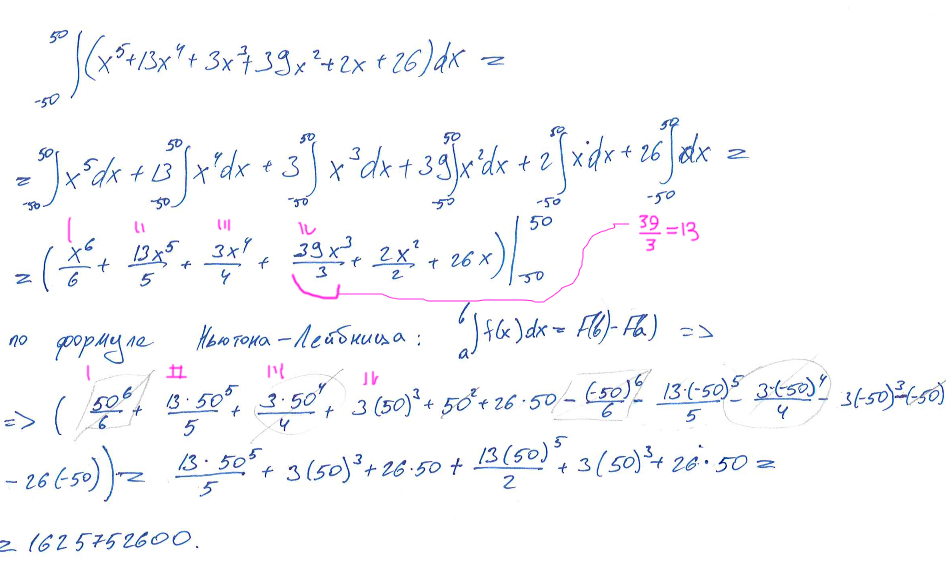 ∫₋₅₀⁵⁰ (x⁵+13x⁴+3x³+39x²+2x+26)dx =
= ∫₋₅₀⁵⁰ x⁵dx + 13 ∫₋₅₀⁵⁰ x⁴dx + 3 ∫₋₅₀⁵⁰ x³dx + 39 ∫₋₅₀⁵⁰ x²dx + 2 ∫₋₅₀⁵⁰ xdx + 26 ∫₋₅₀⁵⁰ dx =
I II III IV 39/3 = 13
= (x⁶/6 + 13x⁵/5 + 3x⁴/4 + 39x³/3 + 2x²/2 + 26x) |₋₅₀⁵⁰
по формуле Ньютона-Лейбница: ∫ₐᵇ f(x)dx = F(b)-F(a) =>
I II III IV
=> (50⁶/6 + 13·50⁵/5 + 3·50⁴/4 + 3(50)³ + 50² + 26·50 - (-50)⁶/6 - 13·(-50)⁵/5 - 3·(-50)⁴/4 - 3(-50)³-(-50)
- 26(-50)) = 13·50⁵/5 + 3(50)³ + 26·50 + 13(50)⁵/2 + 3(50)³ + 26·50 =
= 1625752600.